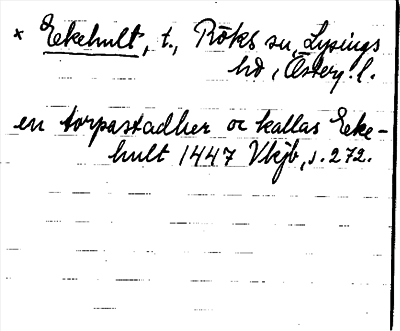 × Eekehult, t., Röks sn, Lysings
hd, Österg. l.
en torpastadher oc kallas Eke-
hult 1447 Vkjb, s. 272.